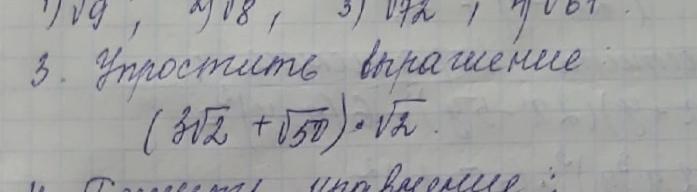 1) √9 ; 2) √8 , 3) √72 ; 4) √61 .
3. Упростить выражение :
(3√2 + √50) • √2 .
уравнение :